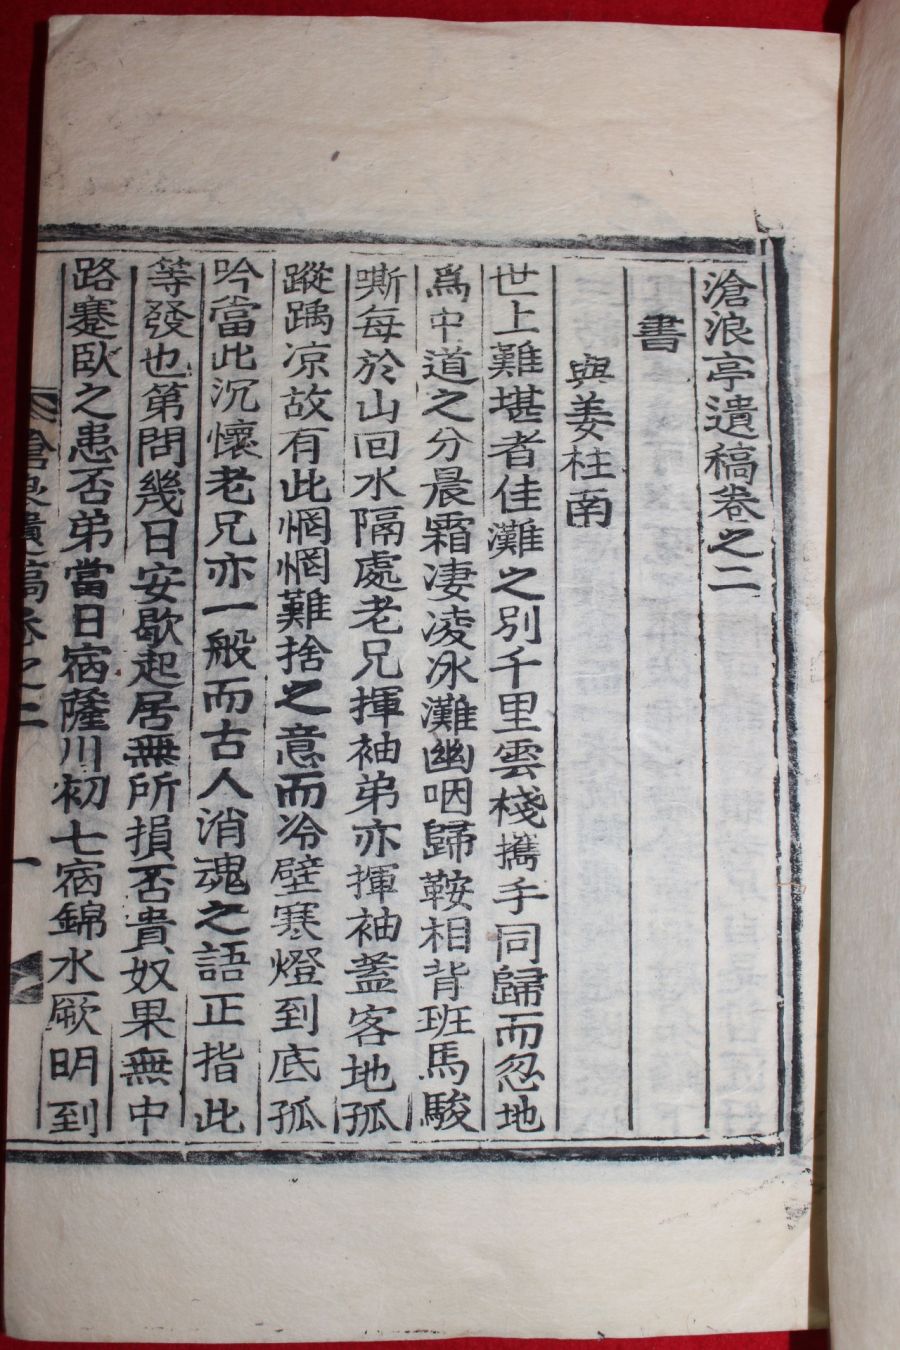 滄浪亭遺稿卷之二
書
與姜柱南
世上難堪者佳灘之別千里雲棧攜手同歸而忽地
爲中道之分晨霜凄凌冰灘幽咽歸鞍相背班馬駿
嘶每於山回水隔處老兄揮袖弟亦揮袖蓋客地孤
蹤踽凉故有此惘惘難捨之意而冷壁寒燈到底孤
吟當此沉懷老兄亦一般而古人消魂之語正指此
等發也第問幾日安歇起居無所損否貴奴果無中
路蹇臥之患否弟當日宿隆川初七宿錦水厥明到
滄浪遺稿卷之二
一